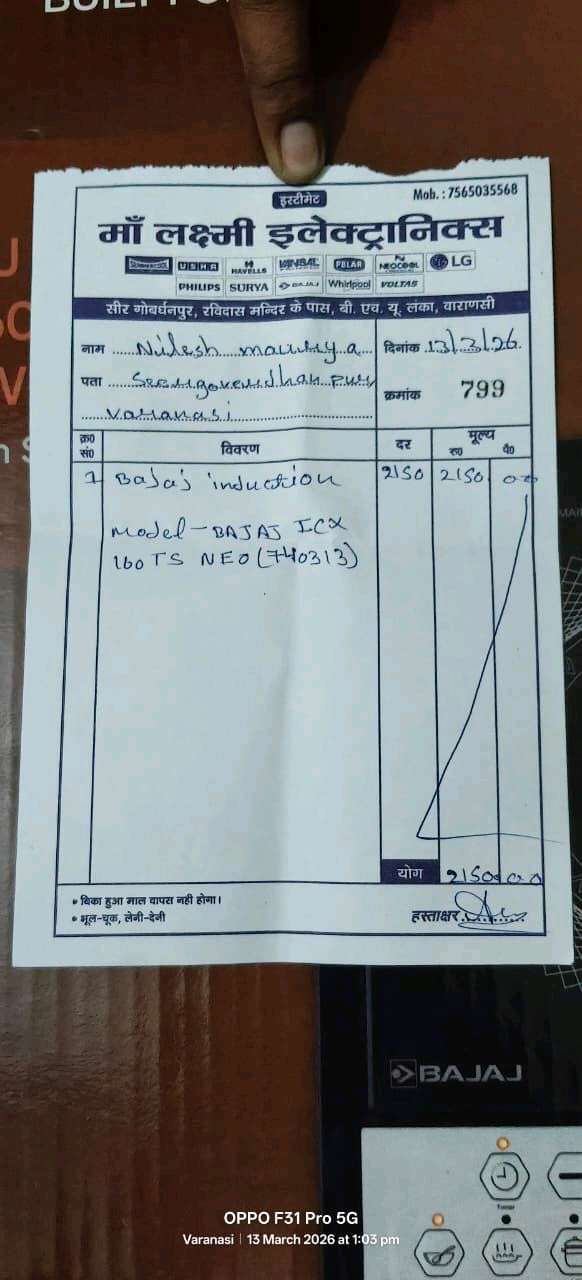 इस्टीमेट
Mob. : 7565035568
माँ लक्ष्मी इलेक्ट्रानिक्स
USHA HAVELLS POLAR LG
PHILIPS SURYA BAJAJ Whirlpool VOLTAS
सीर गोबर्धनपुर, रविदास मन्दिर के पास, बी. एच. यू. लंका, वाराणसी
नाम Nilesh maurya
दिनांक 13/3/26
पता Seergoverdhanpur
Varanasi
क्रमांक 799
क्र० सं० विवरण दर मूल्य रु० पै०
1 Bajaj induction 2150 2150 00
Model - BAJAJ ICX
160 TS NEO (740313)
योग 2150.00
• बिका हुआ माल वापस नही होगा।
• भूल-चूक, लेनी-देनी
हस्ताक्षर
BAJAJ
Timer
OPPO F31 Pro 5G
Varanasi | 13 March 2026 at 1:03 pm